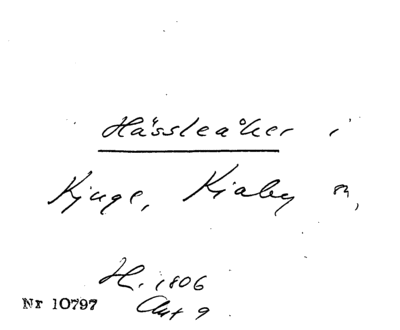 Hässleåker i
Kjuge, Kiaby sn,
H. 1806
Akt 9
Nr 10797